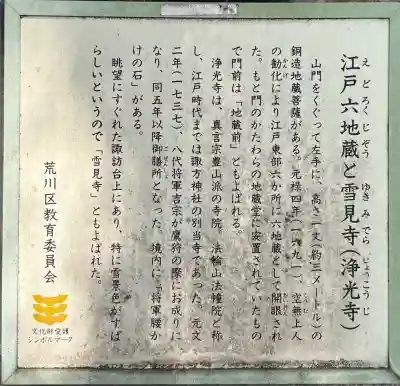 江戸六地蔵と雪見寺(浄光寺)
えどろくじぞう ゆきみでら じょうこうじ
山門をくぐって左手に、高さ一丈(約三メートル)の
銅造地蔵菩薩がある。元禄四年(一六九一)、空無上人
の勧化により江戸東部六か所に六地蔵として開眼され
た。もと門のかたわらの地蔵堂に安置されていたもの
で門前は「地蔵前」ともよばれる。
浄光寺は、真言宗豊山派の寺院。法輪山法幢院と称
し、江戸時代までは諏方神社の別当寺であった。元文
二年(一七三七)、八代将軍吉宗が鷹狩の際にお成りに
なり、同五年以降御膳所となった。境内に「将軍腰か
けの石」がある。
眺望にすぐれた諏訪台上にあり、特に雪景色がすば
らしいというので「雪見寺」ともよばれた。
荒川区教育委員会
文化財愛護
シンボルマーク